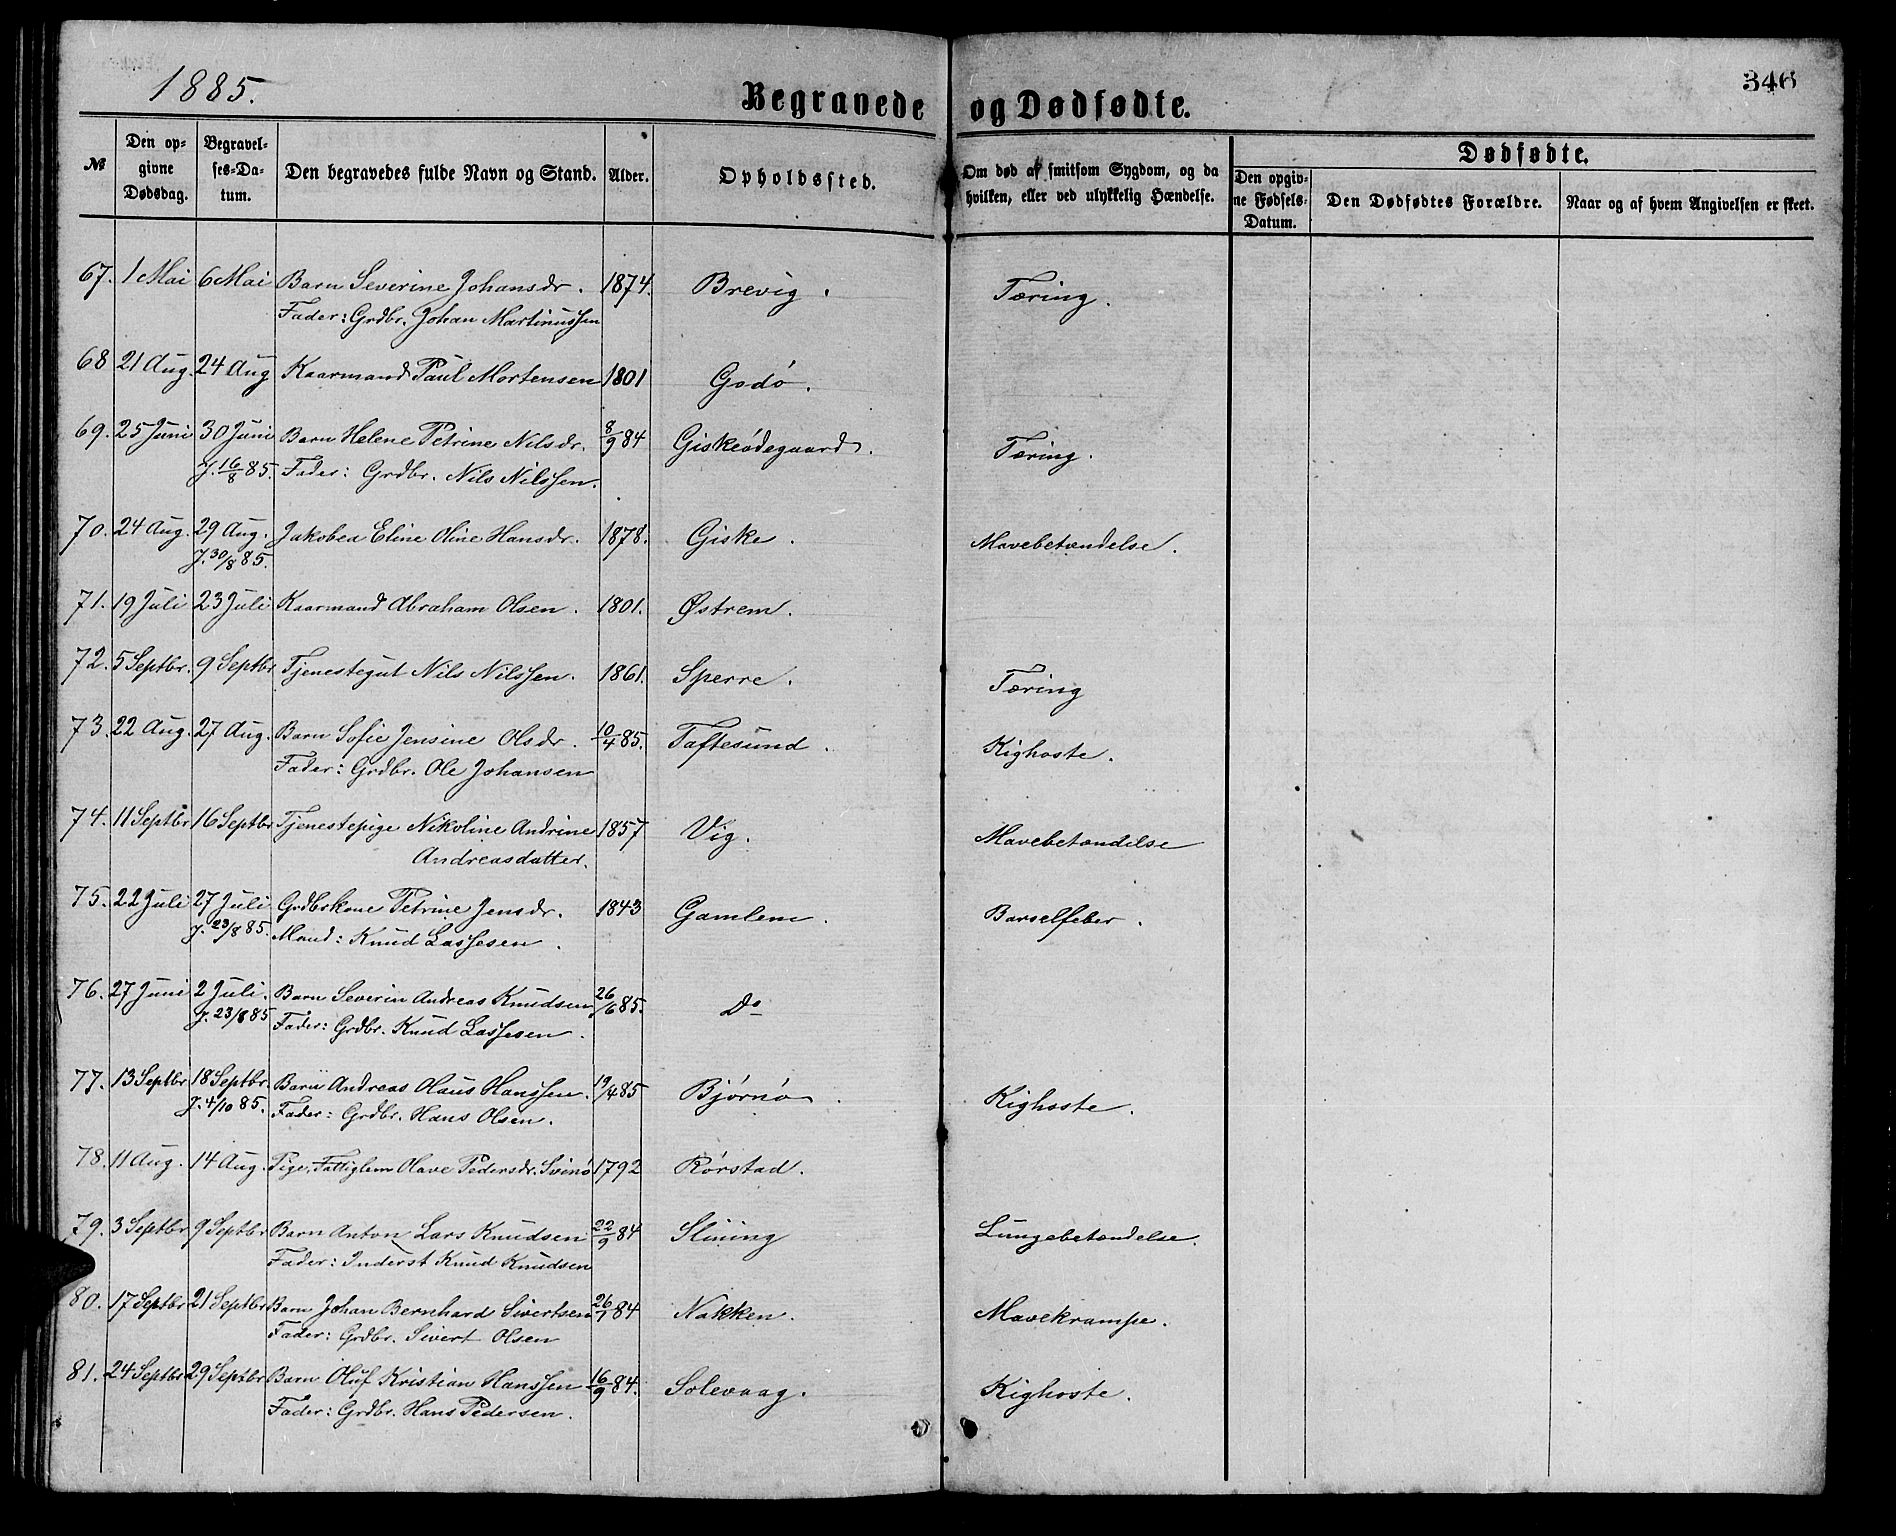 1885.
Begravede og Dødfødte.
346
№ Den opgivne Dødsdag. Begravelses-Datum. Den begravedes fulde Navn og Stand. Alder. Opholdssted. Om død af smitsom Sygdom, og da hvilken, eller ved ulykkelig Hændelse. Dødfødte. Den opgivne Fødsels-Datum. Den Dødfødtes Forældre. Naar og af hvem Angivelsen er skeet.
67. 1 Mai 6 Mai Barn Severine Johansdr. 1874. Brevig. Tæring.
Fader: Grdbr. Johan Martinussen
68 21 Aug. 24 Aug Kaarmand Paul Mortensen 1801 Godø.
69. 25 Juni 30 Juni Barn Helene Petrine Nilsdr. 8/9 84 Giskeødegaard. Tæring.
J. 16/8 85. Fader: Grdbr. Nils Nilssen.
70. 24 Aug. 29 Aug. Jakobea Eline Oline Hansdr. 1878. Giske. Mavebetændelse.
J. 30/8 85.
71. 19 Juli 23 Juli Kaarmand Abraham Olsen. 1801. Østrem.
72. 5 Septbr. 9 Septbr Tjenestegut Nils Nilssen. 1861. Sperre. Tæring
73. 22 Aug. 27 Aug. Barn Sofie Jensine Olsdr. 10/4 85. Taftesund. Kighoste.
Fader: Grdbr. Ole Johansen
74. 11 Septbr 16 Septbr Tjenestepige Nikoline Andrine 1857 Vig. Mavebetændelse
Andreasdatter.
75. 22 Juli 27 Juli Grdbrkone Petrine Jensdr. 1843 Gamlem. Barselfeber.
J. 23/8 85. Mand: Knud Lassesen.
76. 27 Juni 2 Juli. Barn Severin Andreas Knudsen 26/6 85. Do
J. 23/8 85 Fader: Grdbr. Knud Lassesen.
77. 13 Septbr 18 Septbr. Barn Andreas Olaus Hanssen. 19/4 85 Bjørnø. Kighoste.
J. 4/10 85. Fader: Grdbr. Hans Olsen.
78. 11 Aug. 14 Aug. Pige, Fattiglem Olave Pedersdr. Svinø 1792 Rørstad.
79. 3 Septbr 9 Septbr Barn Anton Lars Knudsen 22/9 84 Slining Lungebetændelse.
Fader: Inderst Knud Knudsen
80. 17 Septbr 21 Septbr Barn Johan Bernhard Sivertsen 26/7 84 Nakken. Mavekrampe.
Fader: Grdbr. Sivert Olsen
81. 24 Septbr 29 Septbr Barn Oluf Kristian Hanssen 16/9 84. Solevaag. Kighoste.
Fader: Grdbr. Hans Pedersen.